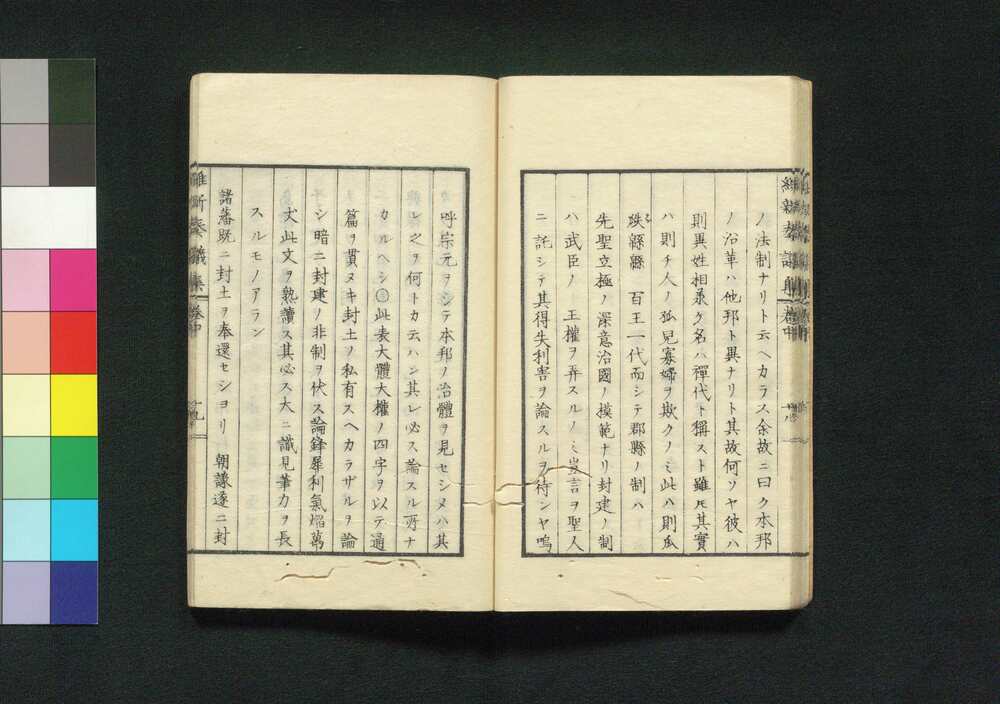 ノ法制ナリト云ヘカラス余故ニ曰ク本邦
ノ沿革ハ他邦ト異ナリト其故何ソヤ彼ハ
則異姓相承ク名ハ禪代ト稱スト雖𪜈其實
ハ則チ人ノ孤兒寡婦ヲ欺クノミ此ハ則瓜
瓞緜緜 百王一代而シテ郡縣ノ制ハ
先聖立極ノ深意治國ノ模範ナリ封建ノ制
ハ武臣ノ 王權ヲ弄スルノミ豈言ヲ聖人
ニ託シテ其得失利害ヲ論スルヲ待ンヤ嗚
呼宗元ヲシテ本邦ノ治體ヲ見セシメハ其
レ之ヲ何トカ云ハン其レ必ス論スル所ナ
カルヘシ◎此表大體大權ノ四字ヲ以テ通
篇ヲ貫ヌキ封土ノ私有スヘカラザルヲ論
シ暗ニ封建ノ非制ヲ伏ス論鋒犀利氣焰萬
丈此文ヲ熟讀ス其必ス大ニ識見筆力ヲ長
スルモノアラン
諸藩既ニ封土ヲ奉還セシヨリ 朝議遂ニ封
維新奏議集 卷中 十九